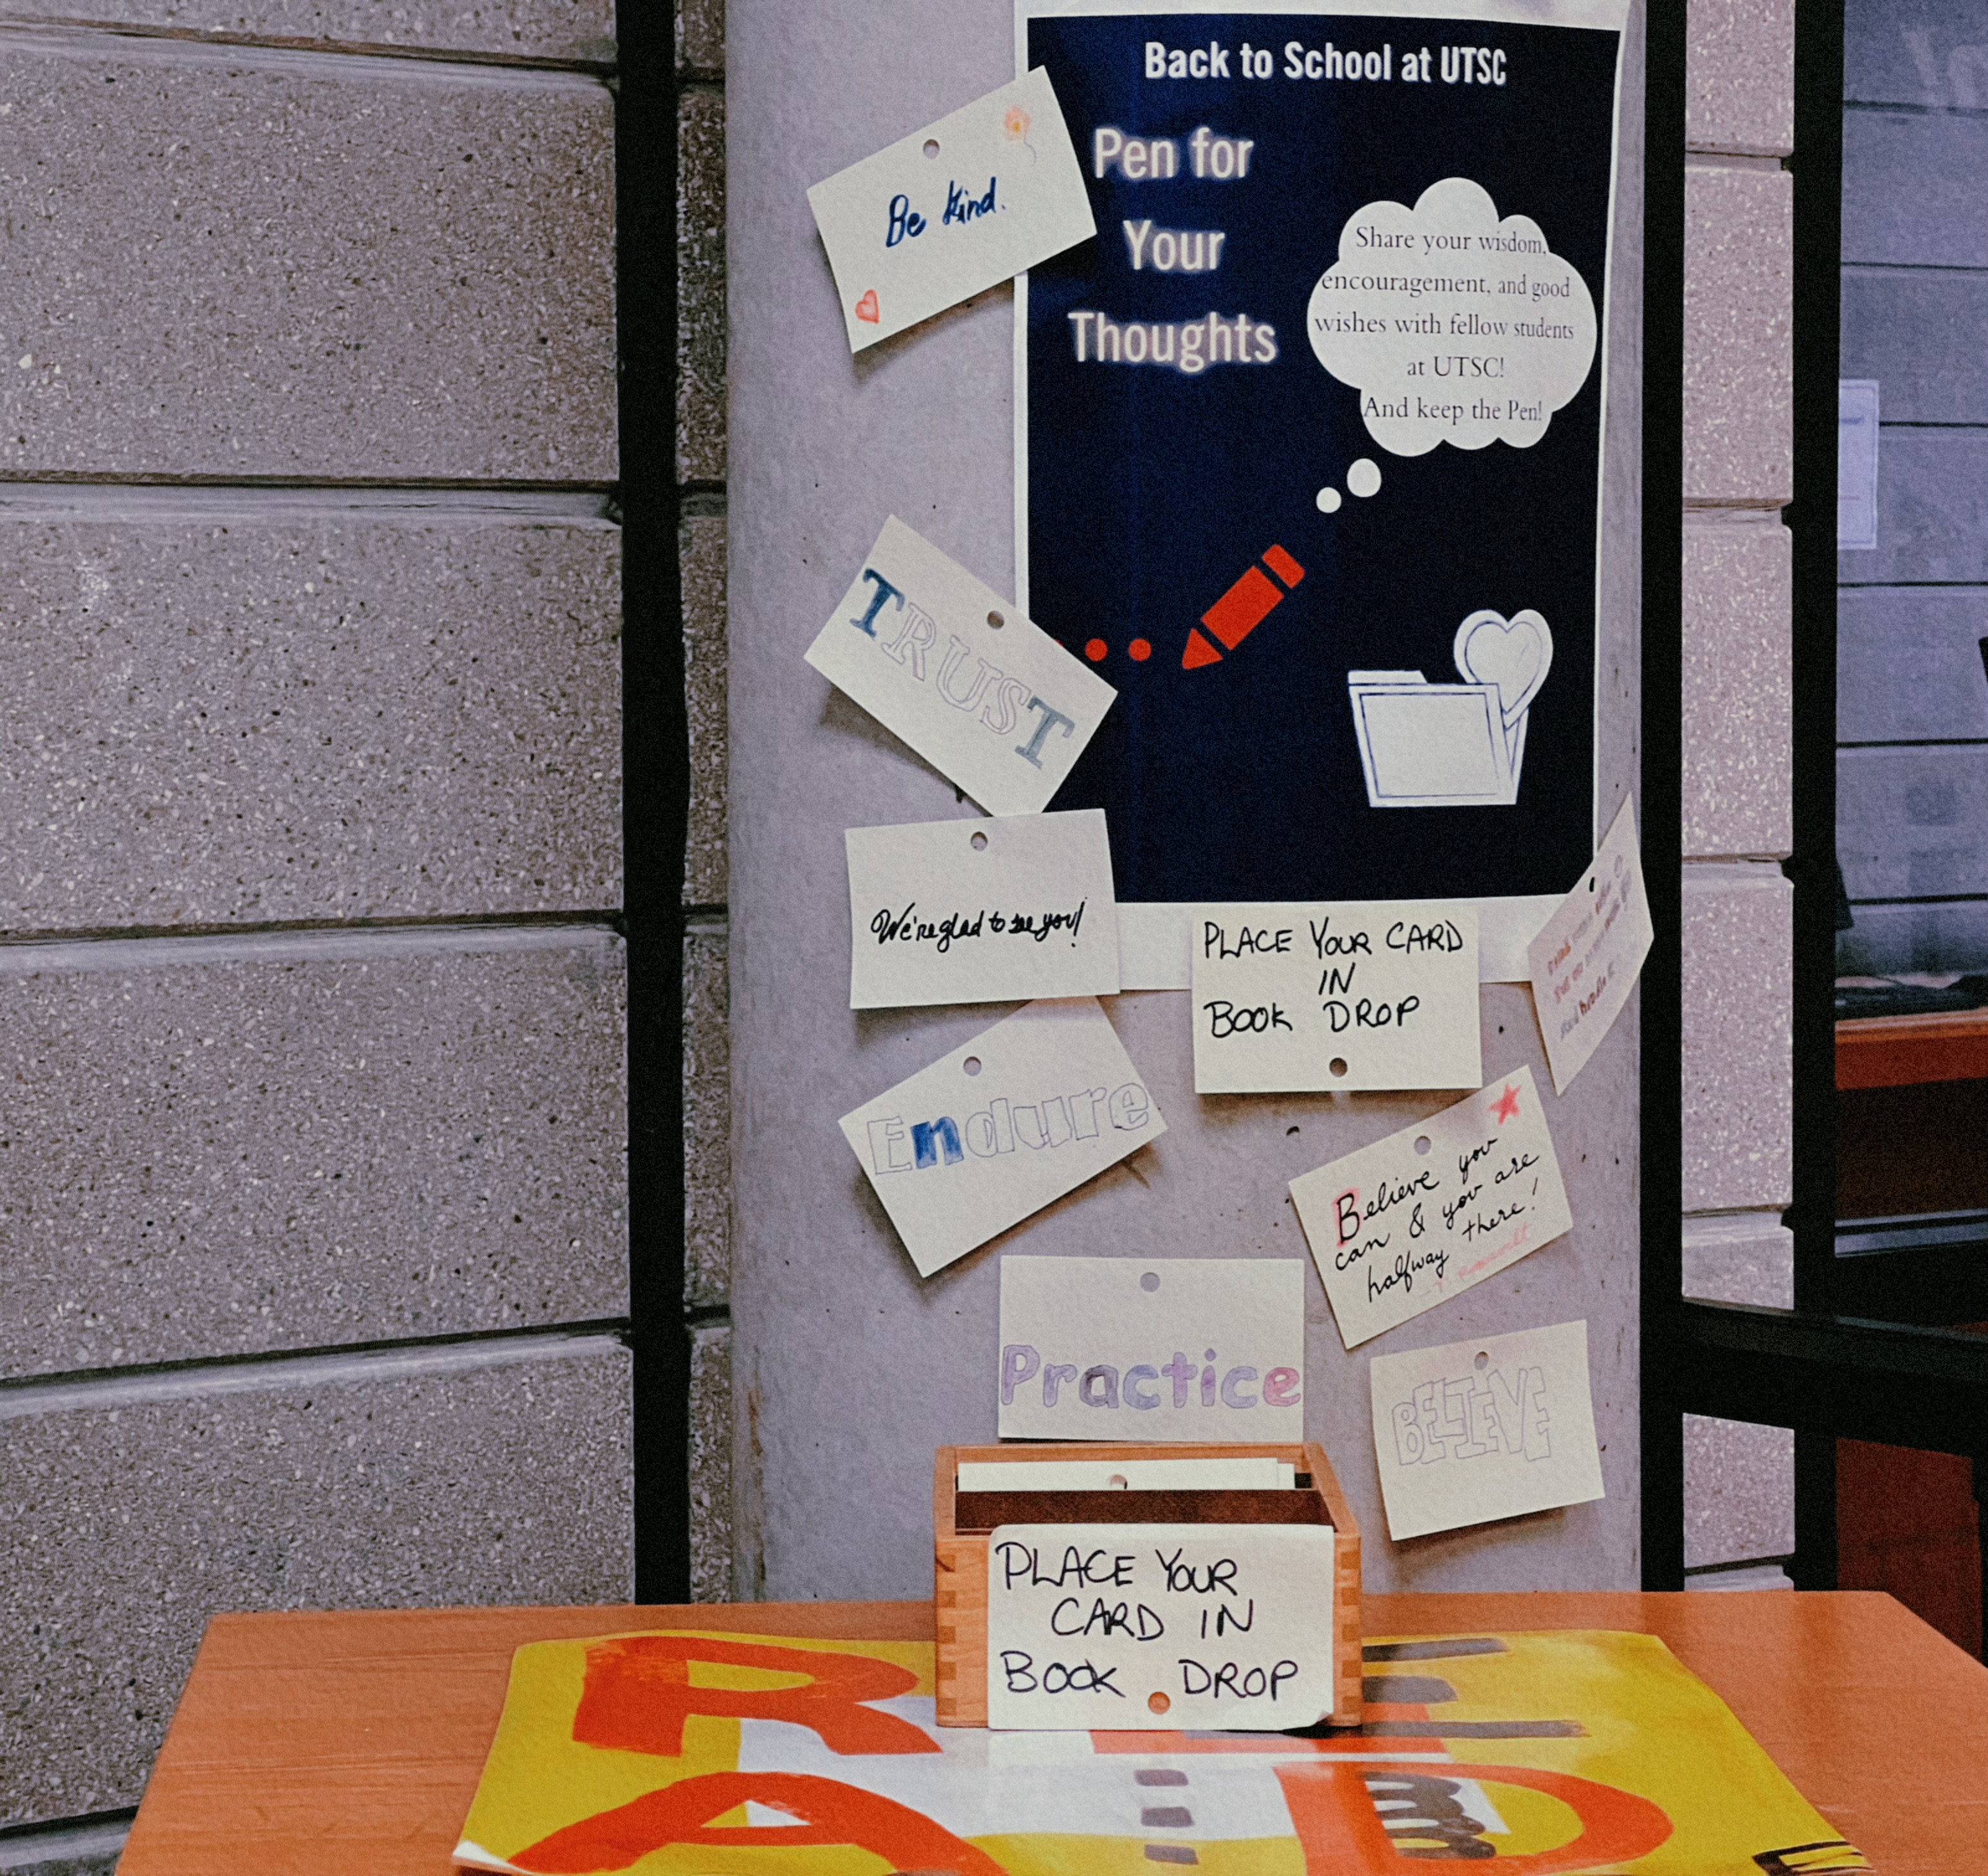 Back to School at UTSC
Pen for
Your
Thoughts
Share your wisdom,
encouragement, and good
wishes with fellow students
at UTSC!
And keep the Pen!
Be kind.
TRUST
We're glad to see you!
PLACE YOUR CARD
IN
BOOK DROP
Endure
Believe you
can & you are
halfway there!
Practice
BELIEVE
PLACE YOUR
CARD IN
BOOK DROP
R
A